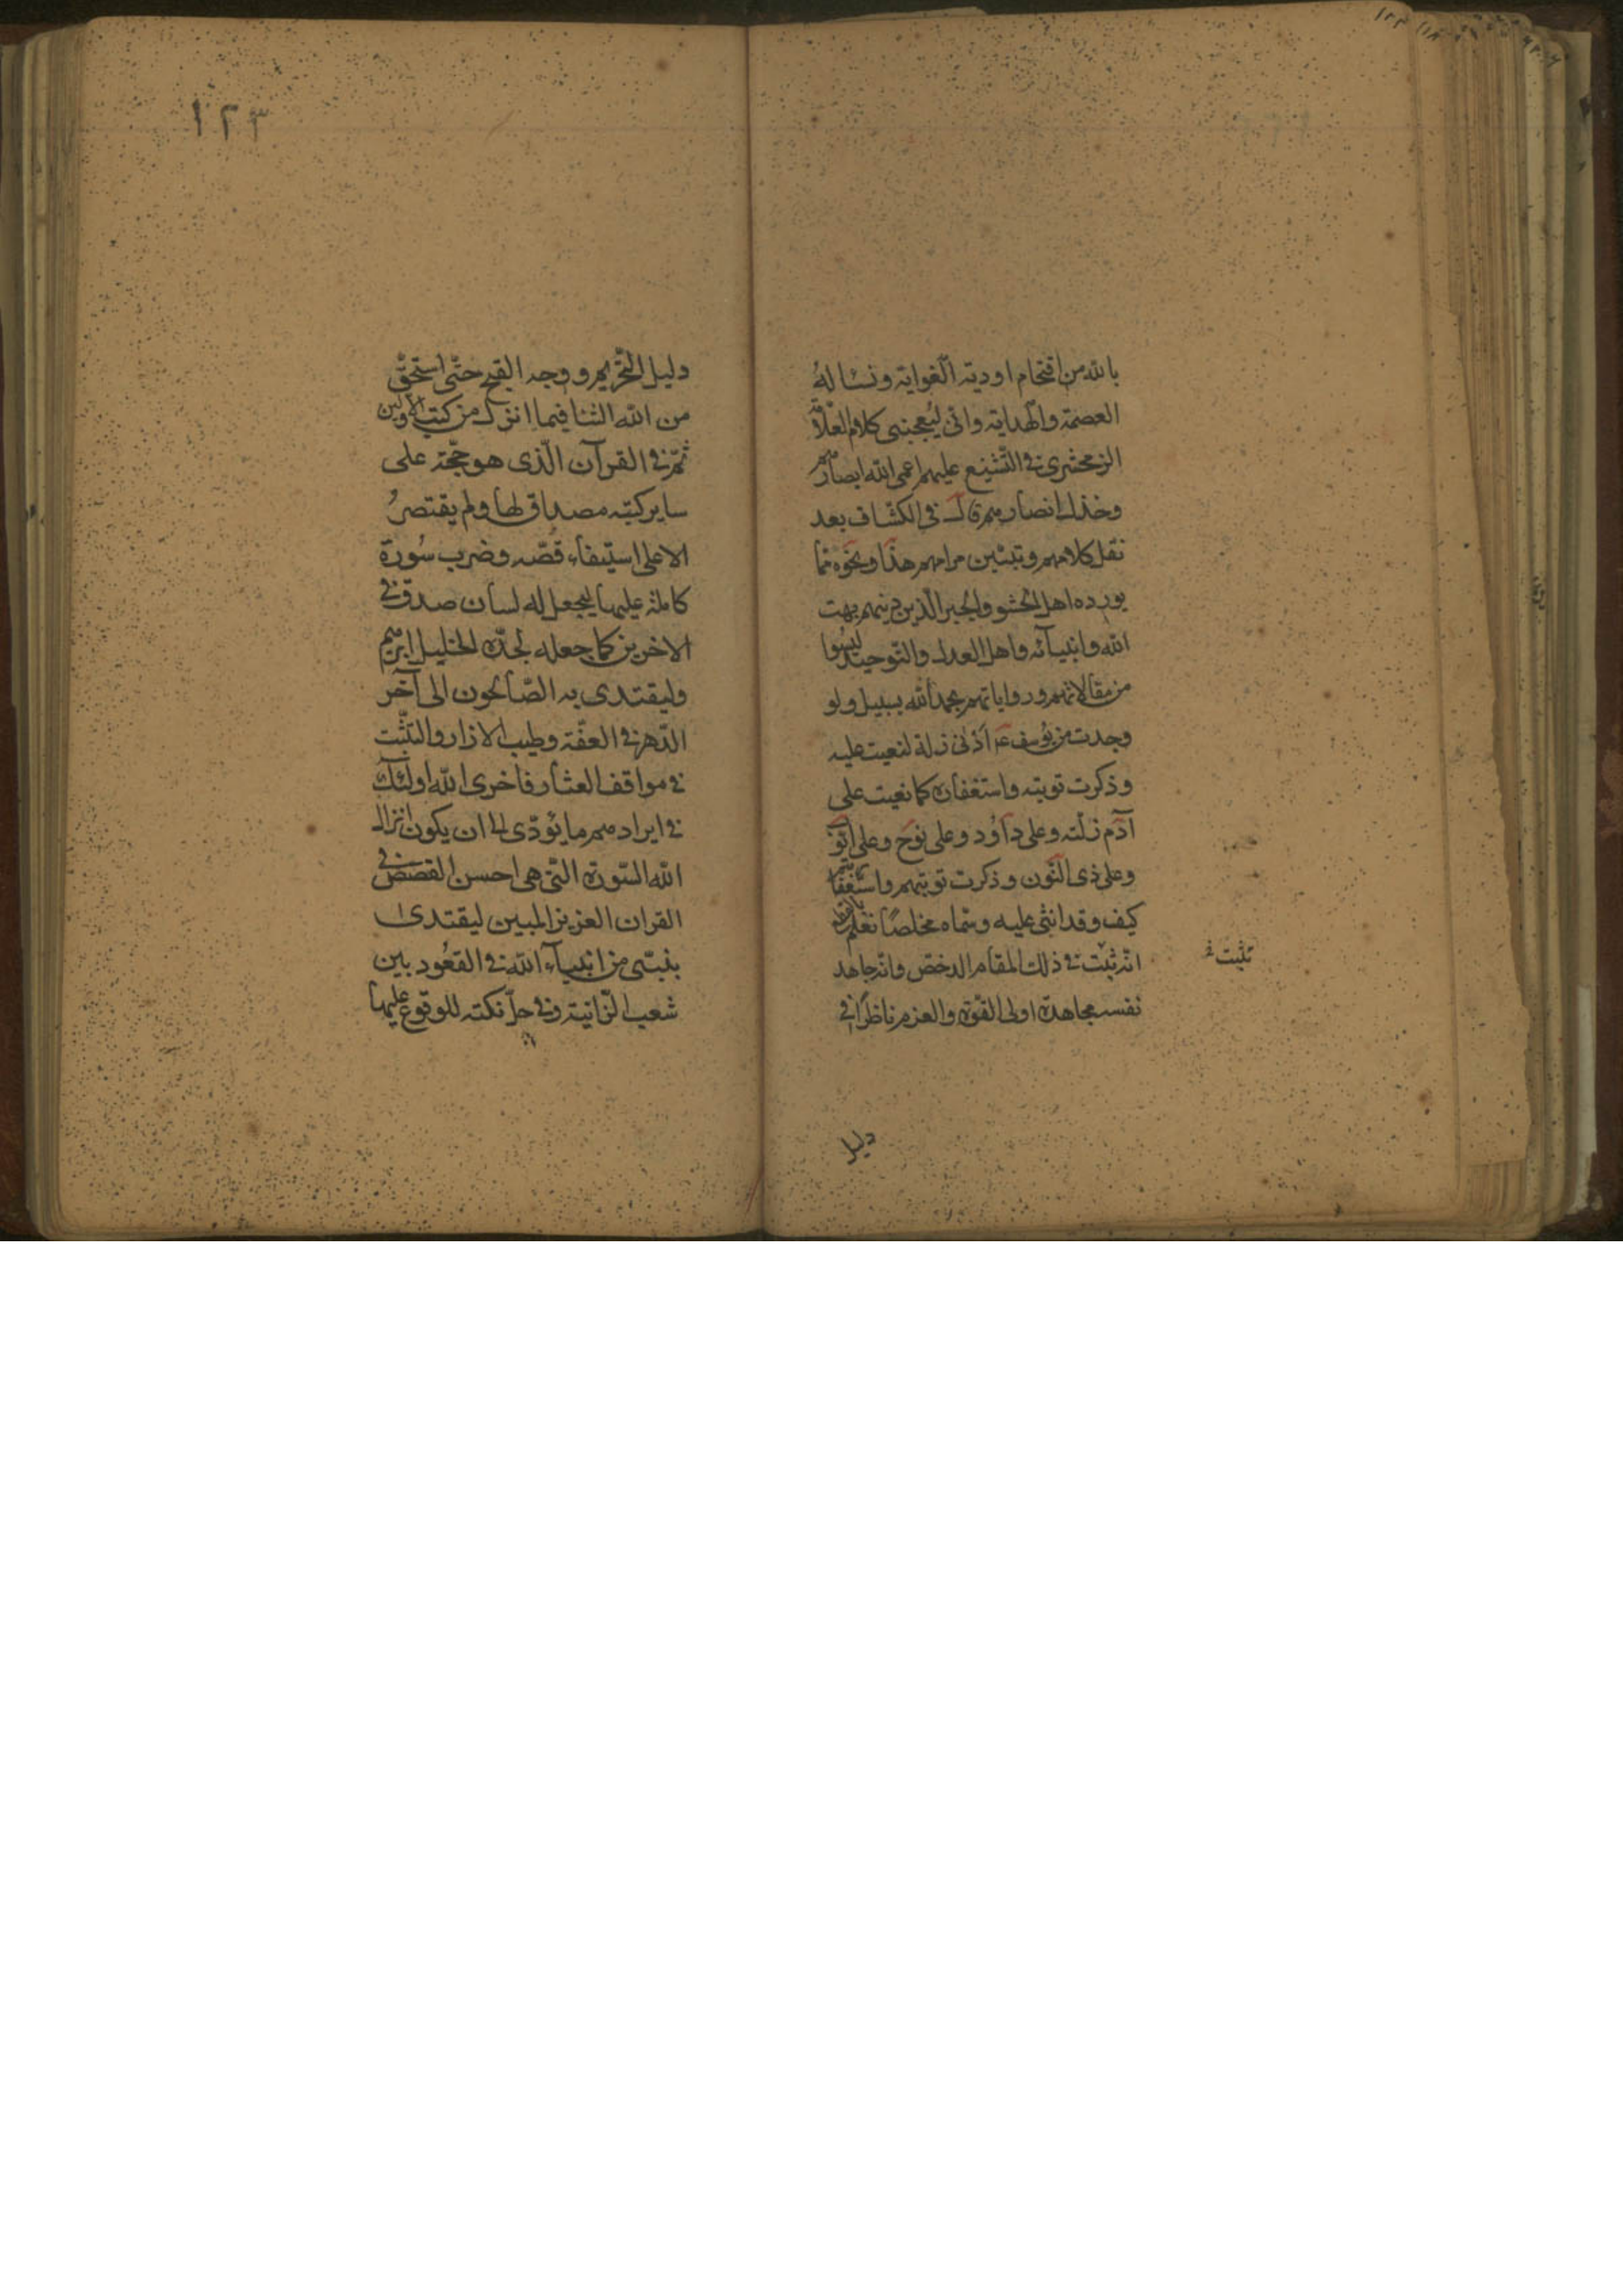 بالله من اقتحام اودية الغواية ونسئاله
العصمة والهداية وانى ليعجبنى كلام العلامة
الزمخشرى فى التشنيع عليهم اعمى الله ابصارهم
وخذل انصارهم قال فى الكشاف بعد
نقل كلامهم وتبيين مرامهم هذا ونحوه مما
يورده اهل الحشو والجبر الذين دينهم بهت
الله وانبيآئه واهل العدل والتوحيد ليسوا
من مقالاتهم ورواياتهم بحمد الله بسبيل ولو
وجدت من يوسف ع ادنى زلة لنعيت عليه
وذكرت توبته واستغفاره كما نعيت على
آدم زلته وعلى داود وعلى نوح وعلى ايوب
وعلى ذى النون وذكرت توبتهم واستغفارهم
كيف وقد اثنى عليه وسماه مخلصا فعلم بالقطع
انه ثبت فى ذلك المقام الدحض وانه جاهد
نفسه مجاهدة اولى القوة والعزم ناظرا فى
تثبت
دليل
١٢٣
دليل التحريم ووجه القبح حتى استحق
من الله الثنا فيما انزل من كتب الاولين
ثم فى القرآن الذى هو حجة على
ساير كتبه مصداق لها ولم يقتصر
الا على استيفاء قصه وضرب سورة
كاملة عليها ليجعل له لسان صدق فى
الاخرين كما جعله لجده الخليل ابرهيم
وليقتدى به الصالحون الى آخر
الدهر فى العفة وطيب الازار والتثبت
فى مواقف العثار فاخزى الله اولئك
فى ايرادهم ما يؤدى الى ان يكون انزال
الله السورة التى هى احسن القصص فى
القران العزيز المبين ليقتدى
بنبى من انبيآء الله فى القعود بين
شعب الزانية وفى حل تكته للوقوع عليها